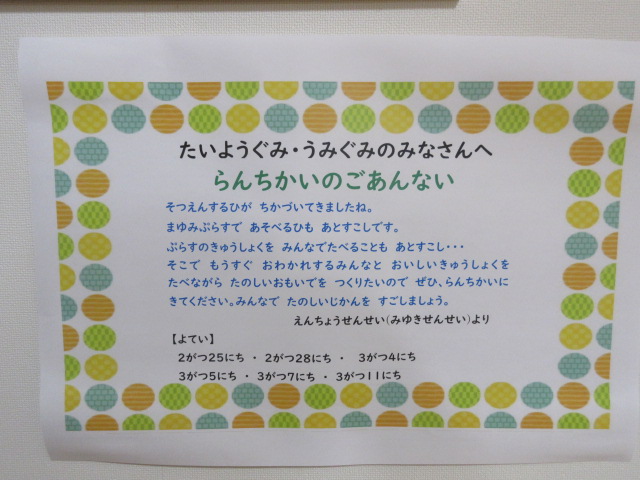 たいようぐみ・うみぐみのみなさんへ
らんちかいのごあんない
そつえんするひが ちかづいてきましたね。
まゆみぷらすで あそべるひも あとすこしです。
ぷらすのきゅうしょくを みんなでたべることも あとすこし・・・
そこで もうすぐ おわかれするみんなと おいしいきゅうしょくを
たべながら たのしいおもいでを つくりたいので ぜひ、らんちかいに
きてください。みんなで たのしいじかんを すごしましょう。
えんちょうせんせい(みゆきせんせい)より
【よてい】
2がつ25にち ・ 2がつ28にち ・ 3がつ4にち
3がつ5にち ・ 3がつ7にち ・ 3がつ11にち